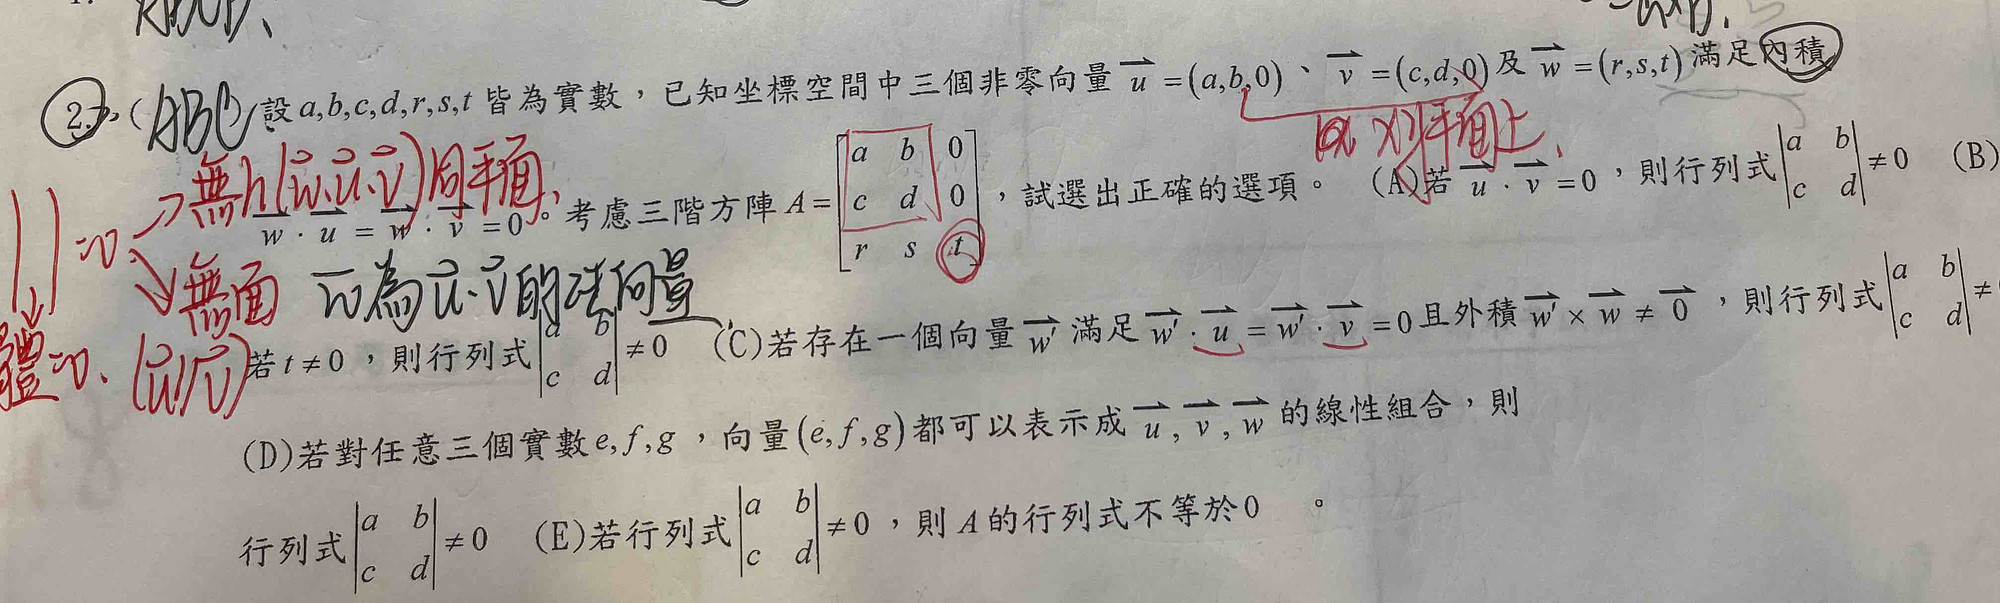 2. (ABC 設 a,b,c,d,r,s,t 皆為實數，已知坐標空間中三個非零向量 $\overrightarrow{u}$ =(a,b,0)、$\overrightarrow{v}$ =(c,d,0)及 $\overrightarrow{w}$ =(r,s,t)滿足內積
在 xy平面上
無h($\vec{w}$.$\vec{u}$.$\vec{v}$)同平面
$\overrightarrow{w}\cdot\overrightarrow{u}=\overrightarrow{w}\cdot\overrightarrow{v}=0$。考慮三階方陣 $A=\begin{bmatrix}a&b&0\\c&d&0\\r&s&t\end{bmatrix}$，試選出正確的選項。 (A)若 $\overrightarrow{u}\cdot\overrightarrow{v}=0$，則行列式 $\begin{vmatrix}a&b\\c&d\end{vmatrix}\neq0$ (B)
| | =0.
無面 $\vec{w}$為$\vec{u}$.$\vec{v}$的法向量
體=0. ($\vec{u}$//$\vec{v}$)
若 $t\neq0$，則行列式 $\begin{vmatrix}a&b\\c&d\end{vmatrix}\neq0$ (C)若存在一個向量 $\overrightarrow{w'}$ 滿足 $\overrightarrow{w'}\cdot\overrightarrow{u}=\overrightarrow{w'}\cdot\overrightarrow{v}=0$ 且外積 $\overrightarrow{w'}\times\overrightarrow{w}\neq\overrightarrow{0}$，則行列式 $\begin{vmatrix}a&b\\c&d\end{vmatrix}\neq$
(D)若對任意三個實數 e,f,g，向量(e,f,g)都可以表示成 $\overrightarrow{u},\overrightarrow{v},\overrightarrow{w}$ 的線性組合，則
行列式 $\begin{vmatrix}a&b\\c&d\end{vmatrix}\neq0$ (E)若行列式 $\begin{vmatrix}a&b\\c&d\end{vmatrix}\neq0$，則 A 的行列式不等於0 。